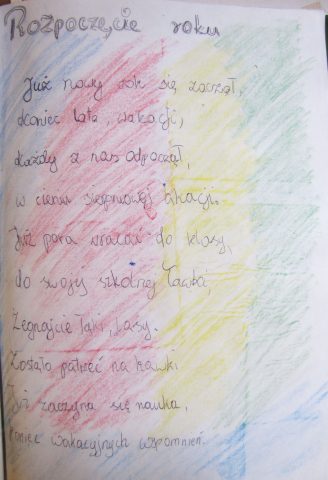 Rozpoczęcie roku
Już nowy rok się zaczął,
koniec lata, wakacji,
każdy z nas odpoczął,
w cieniu sierpniowej akacji.
Już pora wracać do klasy,
do swojej szkolnej ławki,
Żegnajcie łąki, lasy.
Zostało patrzeć na kawki
Już zaczyna się nauka,
koniec wakacyjnych wspomnień.